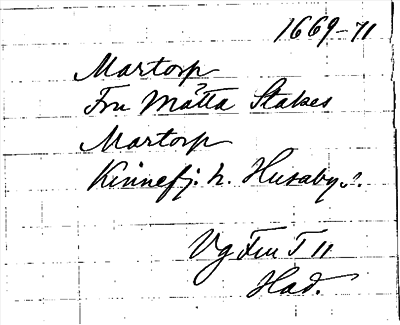 1669-71
Martorp
Fru Måtta Stakes
Martorp
Kinnefj. h. Husaby s.
Vg Fru T 11
Had.